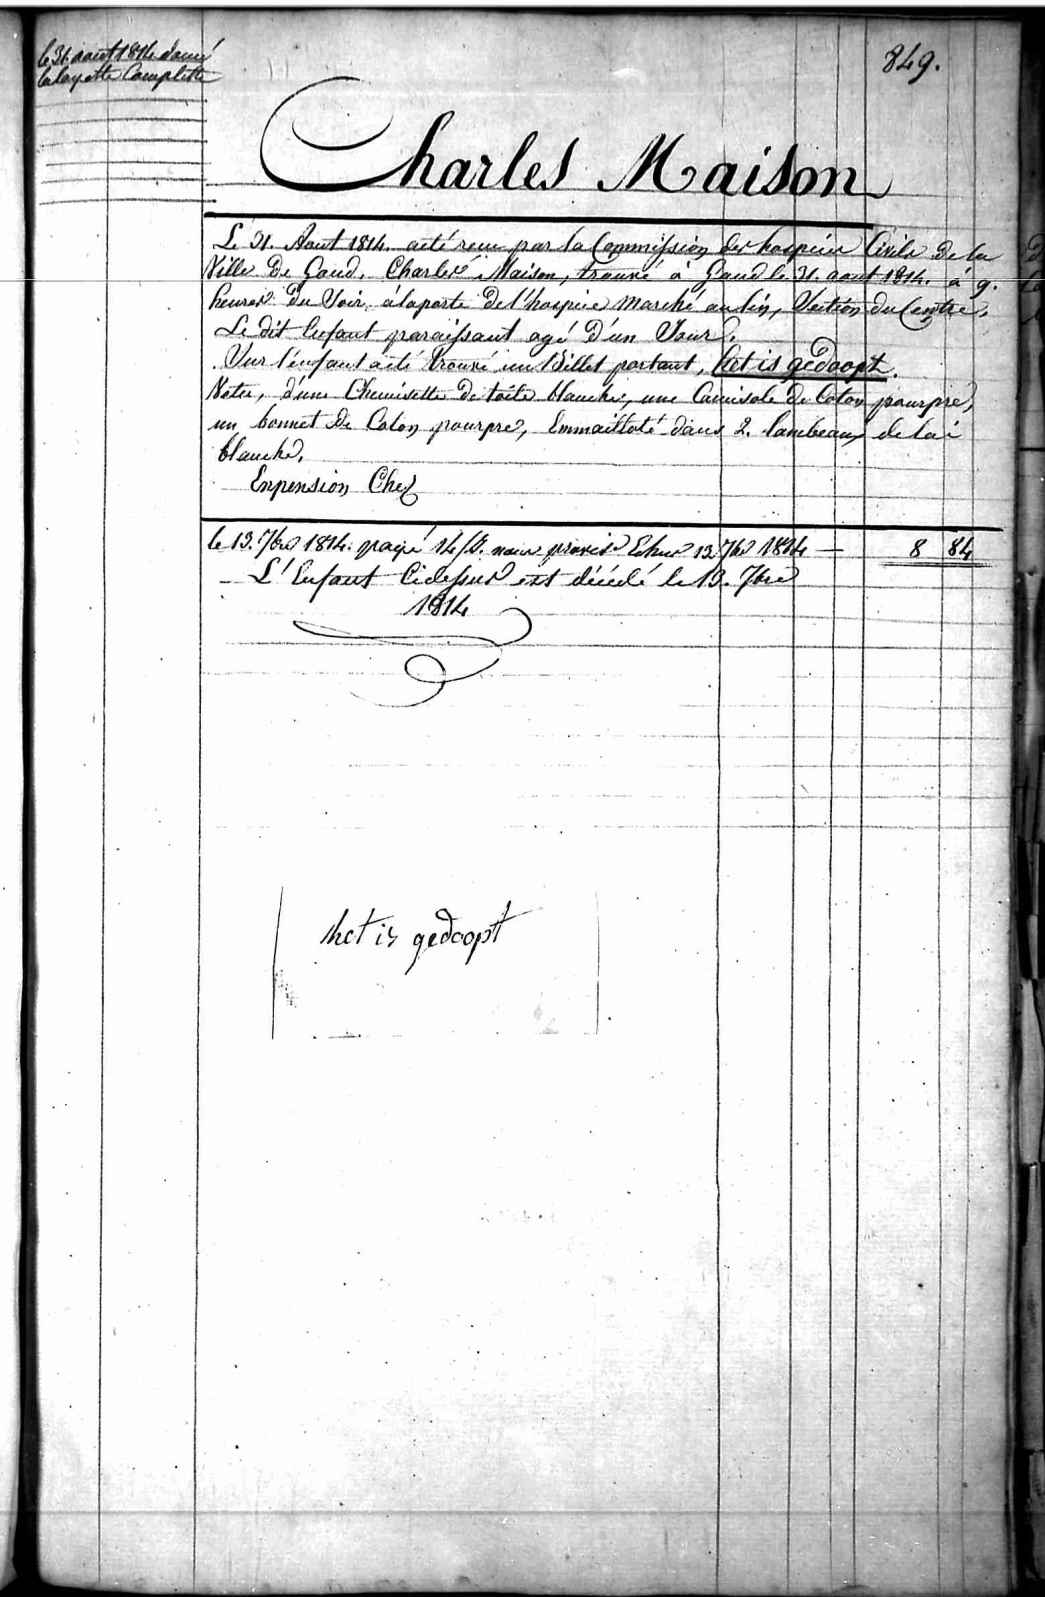 le 31 aout 1814 donné
la layette Complette
849.
Charles Maison
Le 31. Aout 1814. a été reçu par la Commission des hospices Civils De la
Ville De Gand, Charles Maison, trouvé à Gand le 31. aout 1814. à 9.
heures Du Soir, à la porte De l'hospice marché au lin, Section du Centre,
Le dit Enfant paraissant agé D'un Jour.
Sur l'enfant a été trouvé un Billet portant, het is gedoopt.
Vetu, d'une Chemisette De toile blanche, une Camisole de Coton pourpre,
un bonnet De Coton pourpre, Emmailloté dans 2. lambeaux de
blanche.
Enpension Chez
le 13. 7bre 1814. payé 13. 7bre 1814 — 8 84
— L'Enfant Cidessus est décédé le 13. 7bre
1814
het is gedoopt